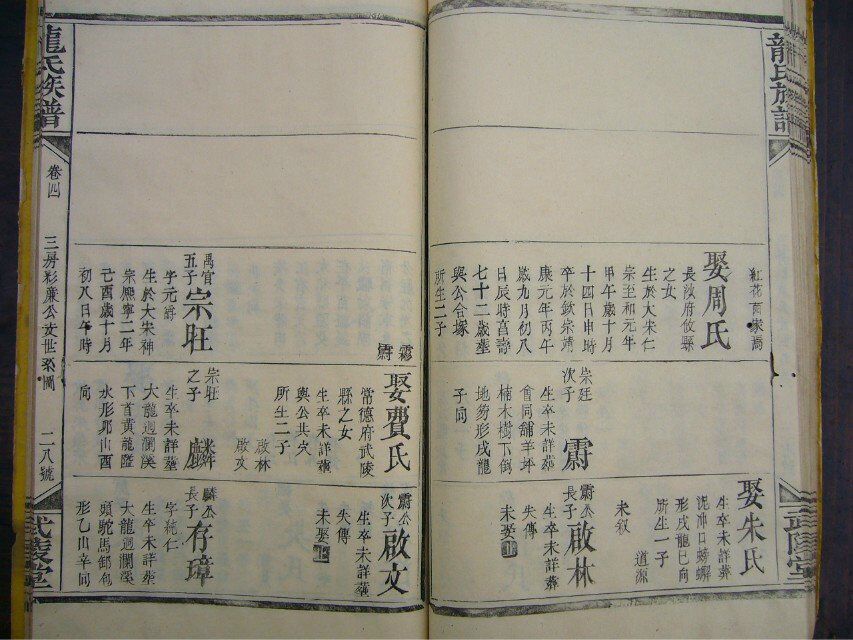 龍氏族譜
紅花
娶周氏
長沙府攸縣
之女
生於大宋仁
宗至和元年
甲午歲十月
十四日申時
卒於欽宗靖
康元年丙午
歲九月初八
日辰時享壽
七十二歲葬
與公合塚
所生二子
霨
次子
霨
生卒未詳葬
會同舖羊坪
楠木樹下倒
地芴形戌龍
子向
娶朱氏
生卒未詳葬
形戌龍巳向
所生一子
道源
未叙
霨公
長子
啟林
生卒未詳葬
失傳
未娶
武陵堂
龍氏族譜
卷四
三房彩廉公支世系圖
二八號
武陵堂
五子
宗旺
字元爵
生於大宋神
宗熙寧二年
己酉歲十月
初八日午時
娶費氏
常德府武陵
縣之女
生卒未詳葬
與公共穴
所生二子
啟林
啟文
宗旺
之子
麟
生卒未詳葬
大龍迴瀾溪
下首黃龍隘
水形邜山酉
向
霨公
次子
啟文
生卒未詳葬
失傳
未娶
麟公
長子
存璋
字純仁
生卒未詳葬
大龍迴瀾溪
頭駝馬卸包
形乙山辛向